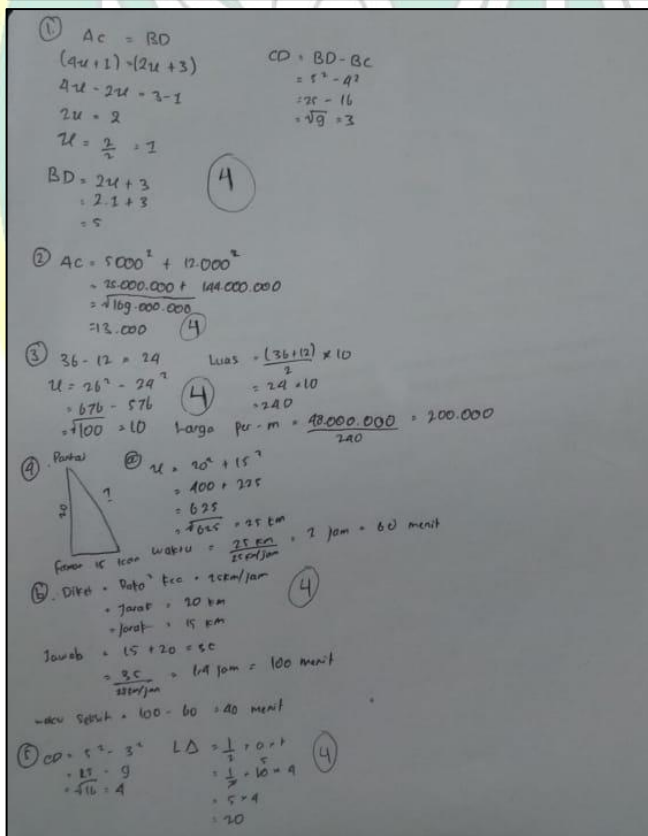 1. AC = BD
(4x+1) = (2x+3)
4x - 2x = 3-1
2x = 2
x = 2/2 = 1
BD = 2x + 3
= 2.1 + 3
= 5
CD = BD - BC
= 5² - 4²
= 25 - 16
= √9 = 3
4
2 AC = 5000² + 12.000²
= 25.000.000 + 144.000.000
= √169.000.000
= 13.000
4
3 36 - 12 = 24
x = 26² - 24²
= 676 - 576
= √100 = 10
4
Luas = (36+12)/2 × 10
= 24 × 10
= 240
Harga per-m = 48.000.000/240 = 200.000
4. Pantai
20
?
15
a x = 20² + 15²
= 400 + 225
= 625
= √625 = 25 km
waktu = 25 km/25km/jam = 1 jam = 60 menit
b. Diket = Rata² kec = 25km/jam
= Jarak = 20 km
= Jarak = 15 km
4
Jawab = 15 + 20 = 35
= 35/25km/jam = 1.4 jam = 100 menit
= 100 - 60 = 40 menit
5 CD = 5² - 3²
= 25 - 9
= √16 = 4
L∆ = 1/2 × a × t
= 1/2 × 10 × 4
5
= 5 × 4
= 20
4